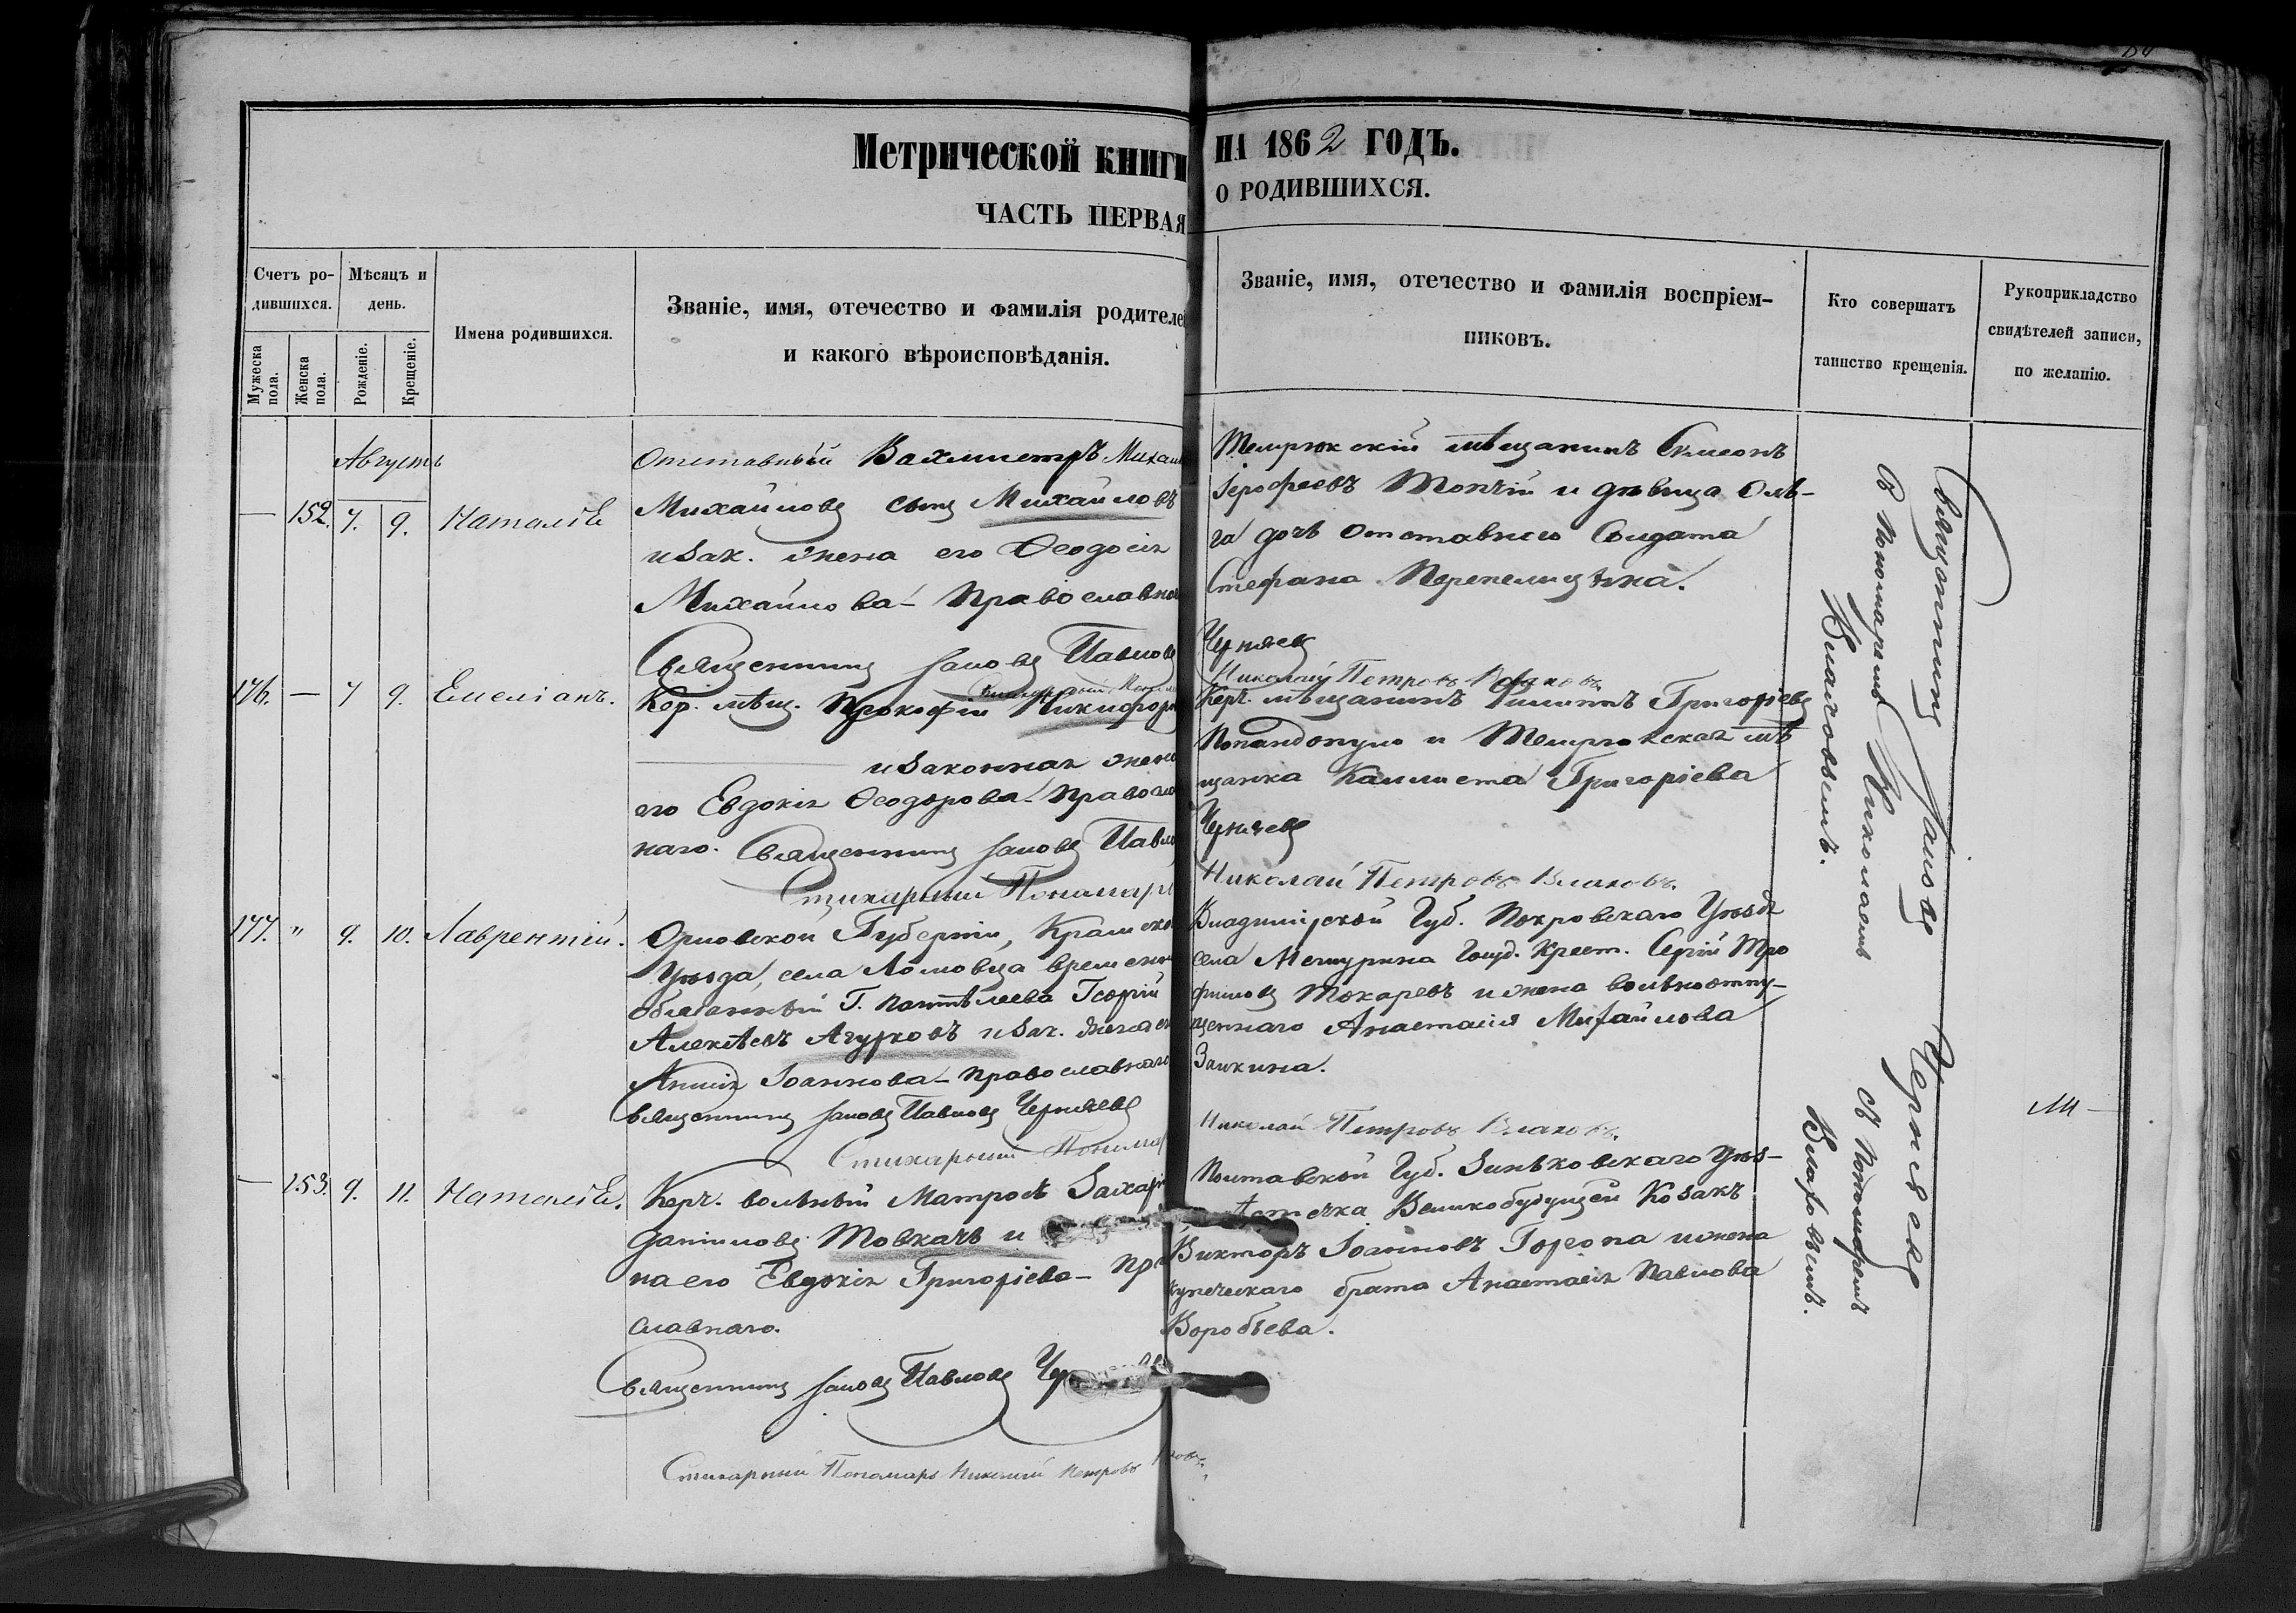 Метрической книги на 1862 годъ.
ЧАСТЬ ПЕРВАЯ О РОДИВШИХСЯ.
Счетъ родившихся.
Мужеска пола.
Женска пола.
Мѣсяцъ и день.
Рожденіе.
Крещеніе.
Имена родившихся.
Званіе, имя, отечество и фамилія родителей
и какого вѣроисповѣданія.
Званіе, имя, отечество и фамилія воспріем-
никовъ.
Кто совершатъ
таинство крещенія.
Рукоприкладство
свидѣтелей записи,
по желанію.
Августъ
— 152. 7. 9. Наталія
Отставный Вахмистръ
Михайловъ сынъ Михайловъ
и зак. жена его Ѳеодосія
Михайлова – Православнаго
Священникъ Іаковъ Павловъ
Темрюкскій мѣщанинъ Симеонъ
Іерофеевъ Топчій и дѣвица Оль-
га дочь отставнаго Солдата
Стефана Перепелицына.
Черняевъ
Николай Петровъ Влаховъ.
176. — 7 9. Емеліанъ.
Кер. мѣщ. Прокофій Никифоръ
и законная жена
его Евдокія Ѳеодорова – Православ
наго. Священникъ Іаковъ Павловъ
Стихарный Пономарь
Керч. мѣщанинъ Филиппъ Григорьевъ
Попандопуло и Темрюкская мѣ
щанка Калиста Григорьева
Черняевъ
Николай Петровъ Влаховъ.
177. " 9. 10. Лаврентій.
Орловской Губерніи,
Уѣзда, села Ломовца временно
обязанный Г. Пантѣлеева Георгій
Алексѣевъ Агурковъ и зак. жена его
Іоаннова – Православнаго
Священникъ Іаковъ Павловъ Черняевъ
Стихарный Пономарь
Владимірской Губ. Покровскаго Уѣзда
села Госуд. крест. Сергій Тро
фимовъ Токаревъ и жена вольноотпу-
щеннаго Анастасія Михайлова
Заикина.
Николай Петровъ Влаховъ.
— 153. 9. 11. Наталія.
Керч. вольный Матросъ Захарій
Даніиловъ Товкачъ и
на его Евдокія Григорьева – Пра
славнаго.
Священникъ Іаковъ Павловъ
Стихарный Пономарь Николай Петровъ
Полтавской Губ. Зиньковскаго Уѣз-
Великобудущей Козакъ
Викторъ Іоанновъ Горопа и жена
купеческаго брата Анастасія Павлова
Воробьева.
Священникъ Іаковъ Черняевъ
съ Пономаремъ Николаемъ
Влаховымъ.
съ Пономаремъ
Влаховымъ.